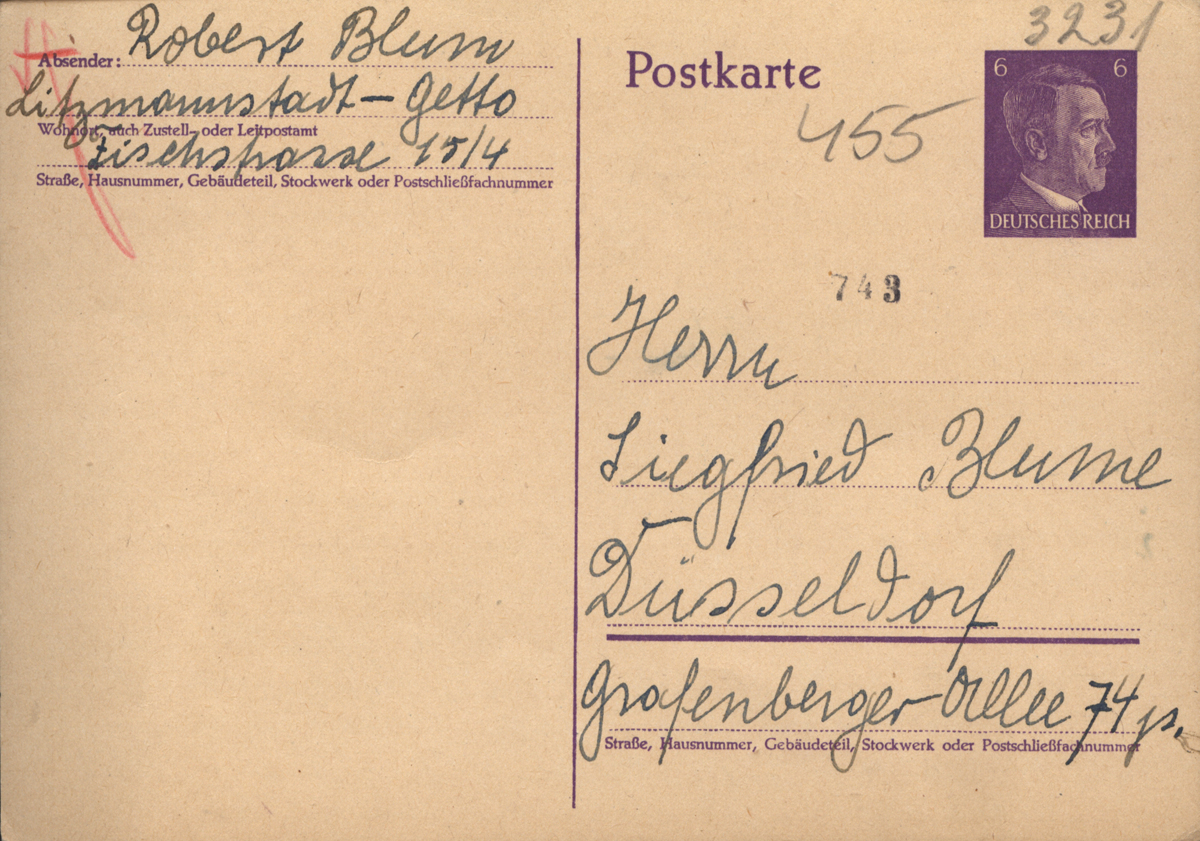 Absender: Robert Blum
Litzmannstadt - Getto
Wohnort, auch Zustell- oder Leitpostamt
Fischstrasse 15/4
Straße, Hausnummer, Gebäudeteil, Stockwerk oder Postschließfachnummer
Postkarte
3231
455
6 6
DEUTSCHES REICH
743
Herrn
Siegfried Blume
Düsseldorf
Grafenberger-Allee 74
Straße, Hausnummer, Gebäudeteil, Stockwerk oder Postschließfachnummer